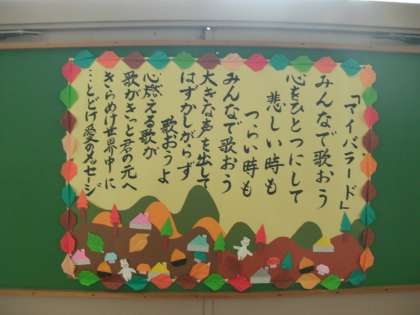 「マイバラード」
みんなで歌おう
心をひとつにして
悲しい時も
つらい時も
みんなで歌おう
大きな声を出して
はずかしがらず
歌おうよ
心燃える歌が
歌がきっと君の元へ
きらめけ世界中に
…とどけ愛のメセージ